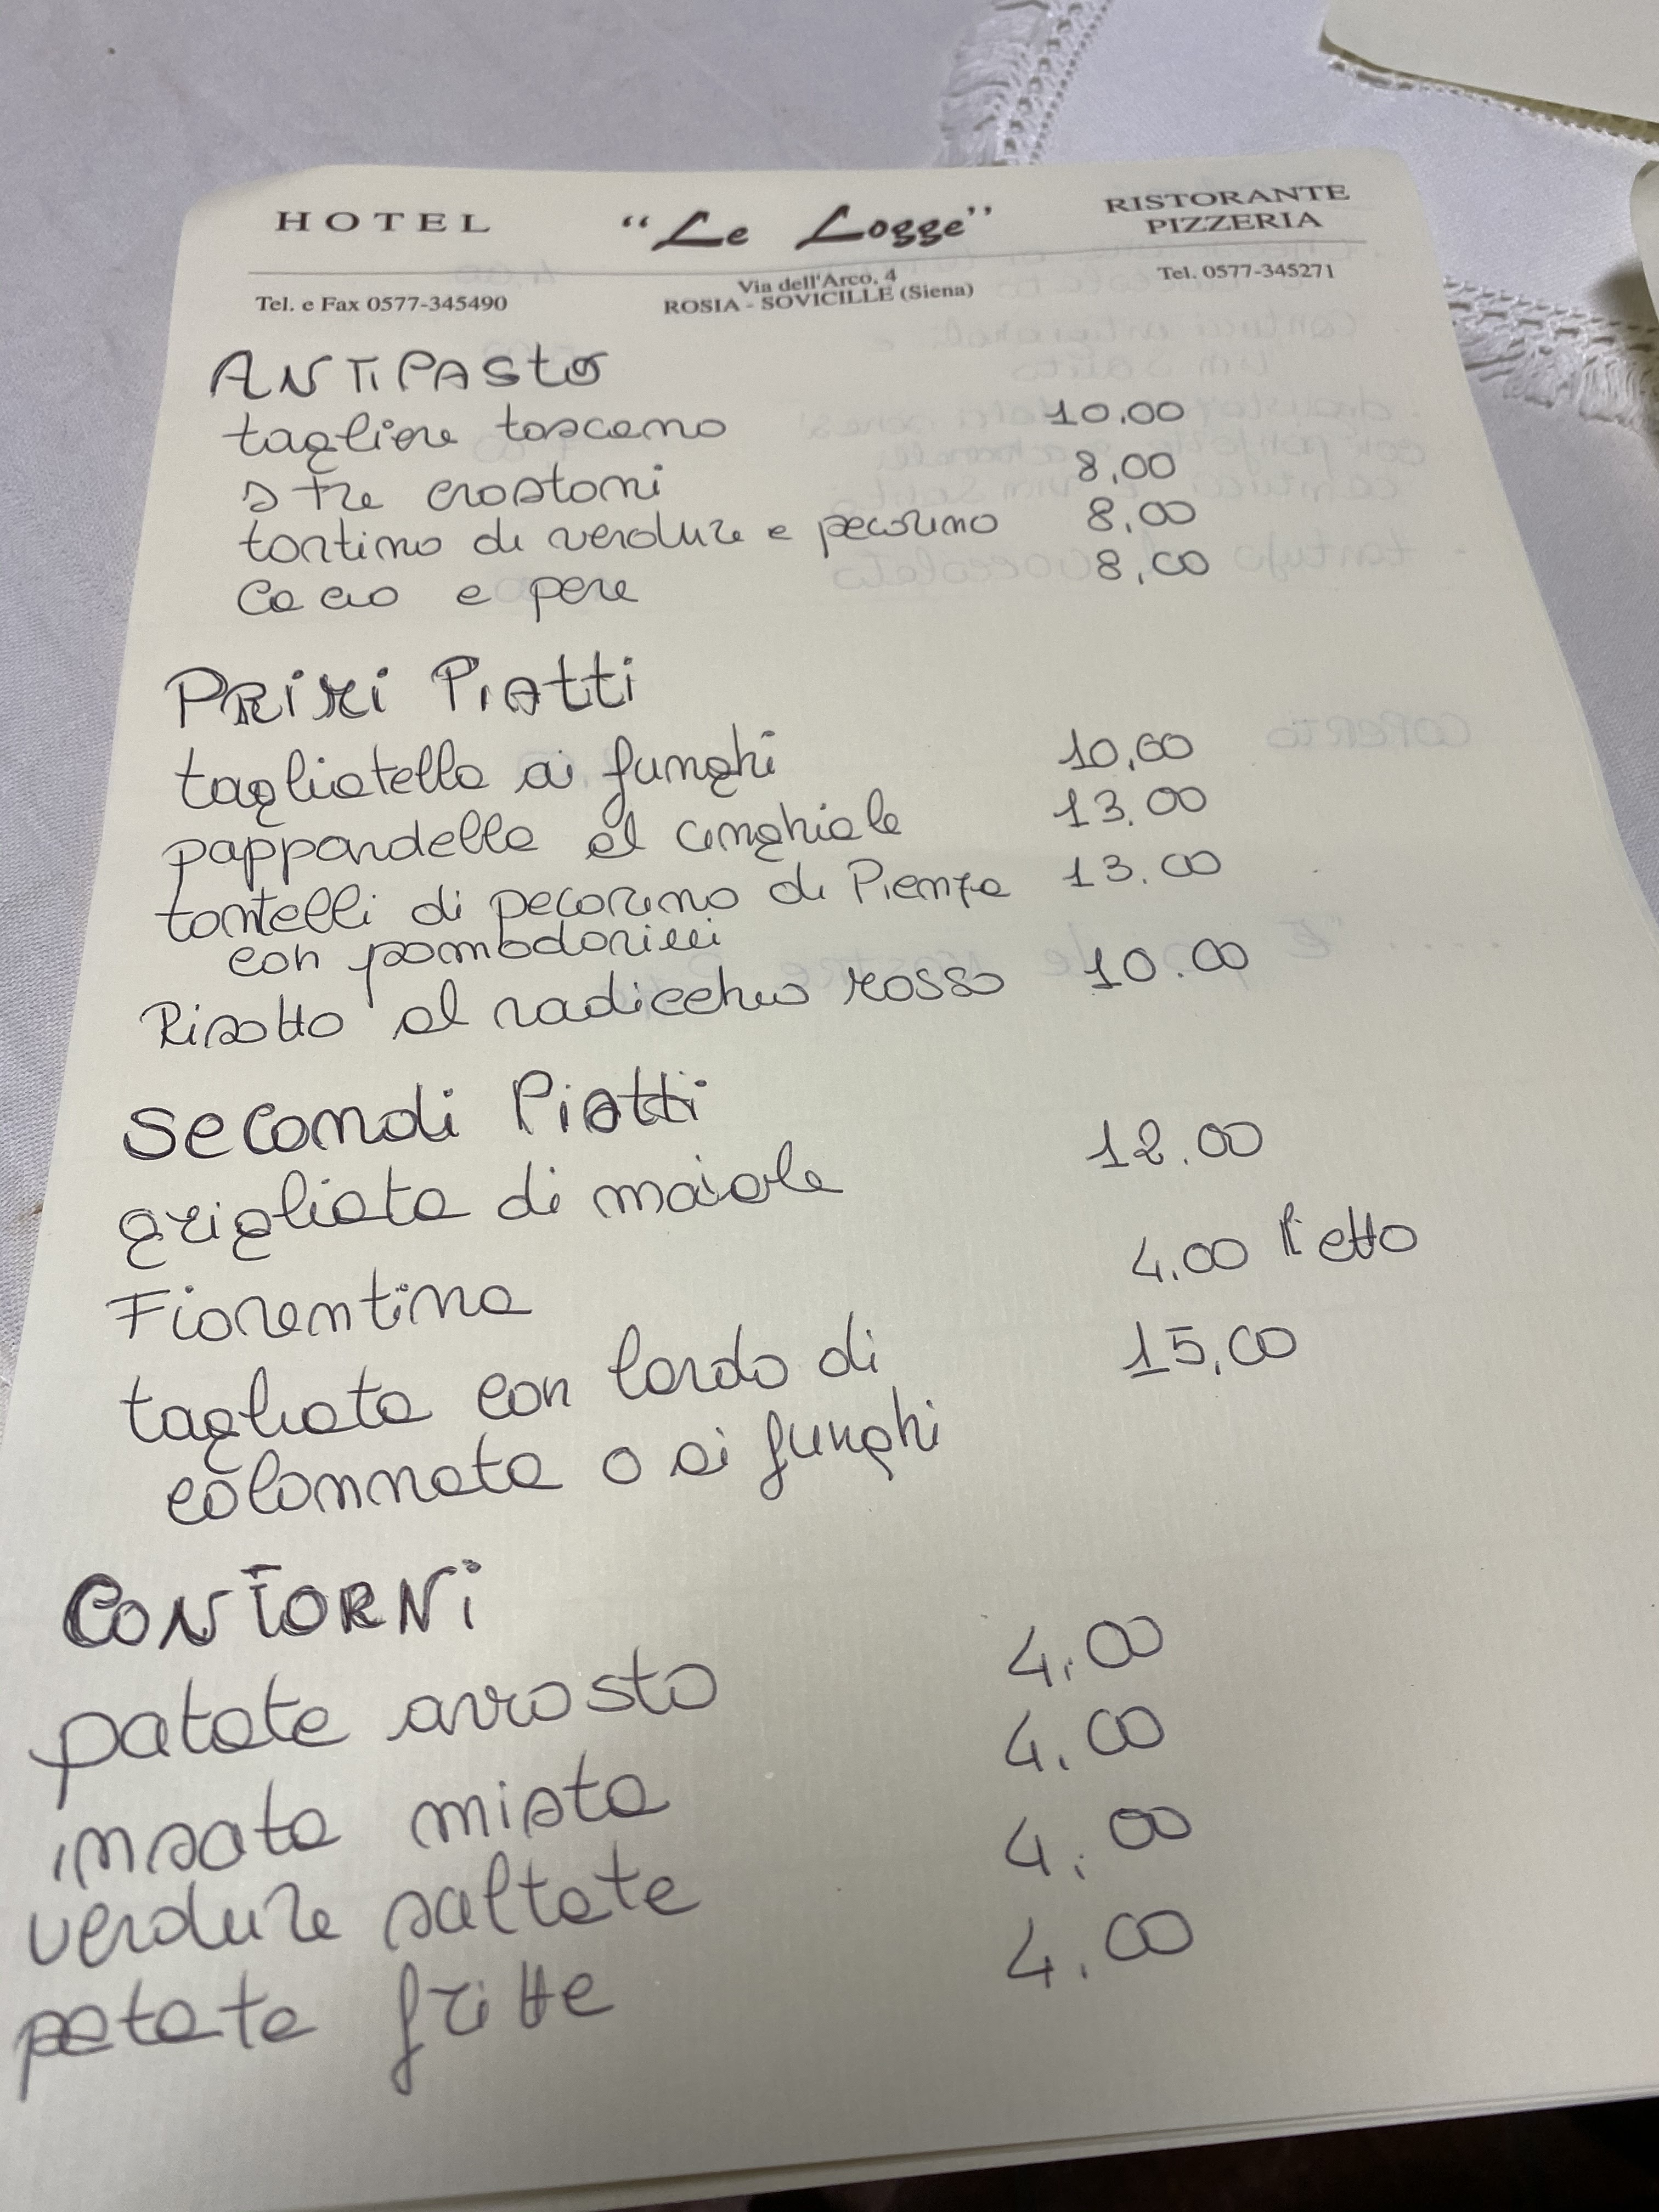 HOTEL "Le Logge" RISTORANTE
PIZZERIA
Tel. e Fax 0577-345490 Via dell'Arco, 4 Tel. 0577-345271
ROSIA - SOVICILLE (Siena)
ANTIPASTO
tagliere toscano 10.00
3 tre crostoni 8,00
tortino di verdure e pecorino 8,00
Cacio e pere 8,00
PRIMI PIATTI
tagliatelle ai funghi 10,00
pappardelle al cinghiale 13.00
tortelli di pecorino di Pienza 13.00
con pomodorini
Risotto al radicchio rosso 10.00
Secondi Piatti
grigliata di maiale 12.00
Fiorentina 4.00 l'etto
tagliata con lardo di 15,00
colonnata o ai funghi
CONTORNI
patate arrosto 4,00
insata mista 4.00
verdure saltate 4,00
patate fritte 4.00
COPERTO